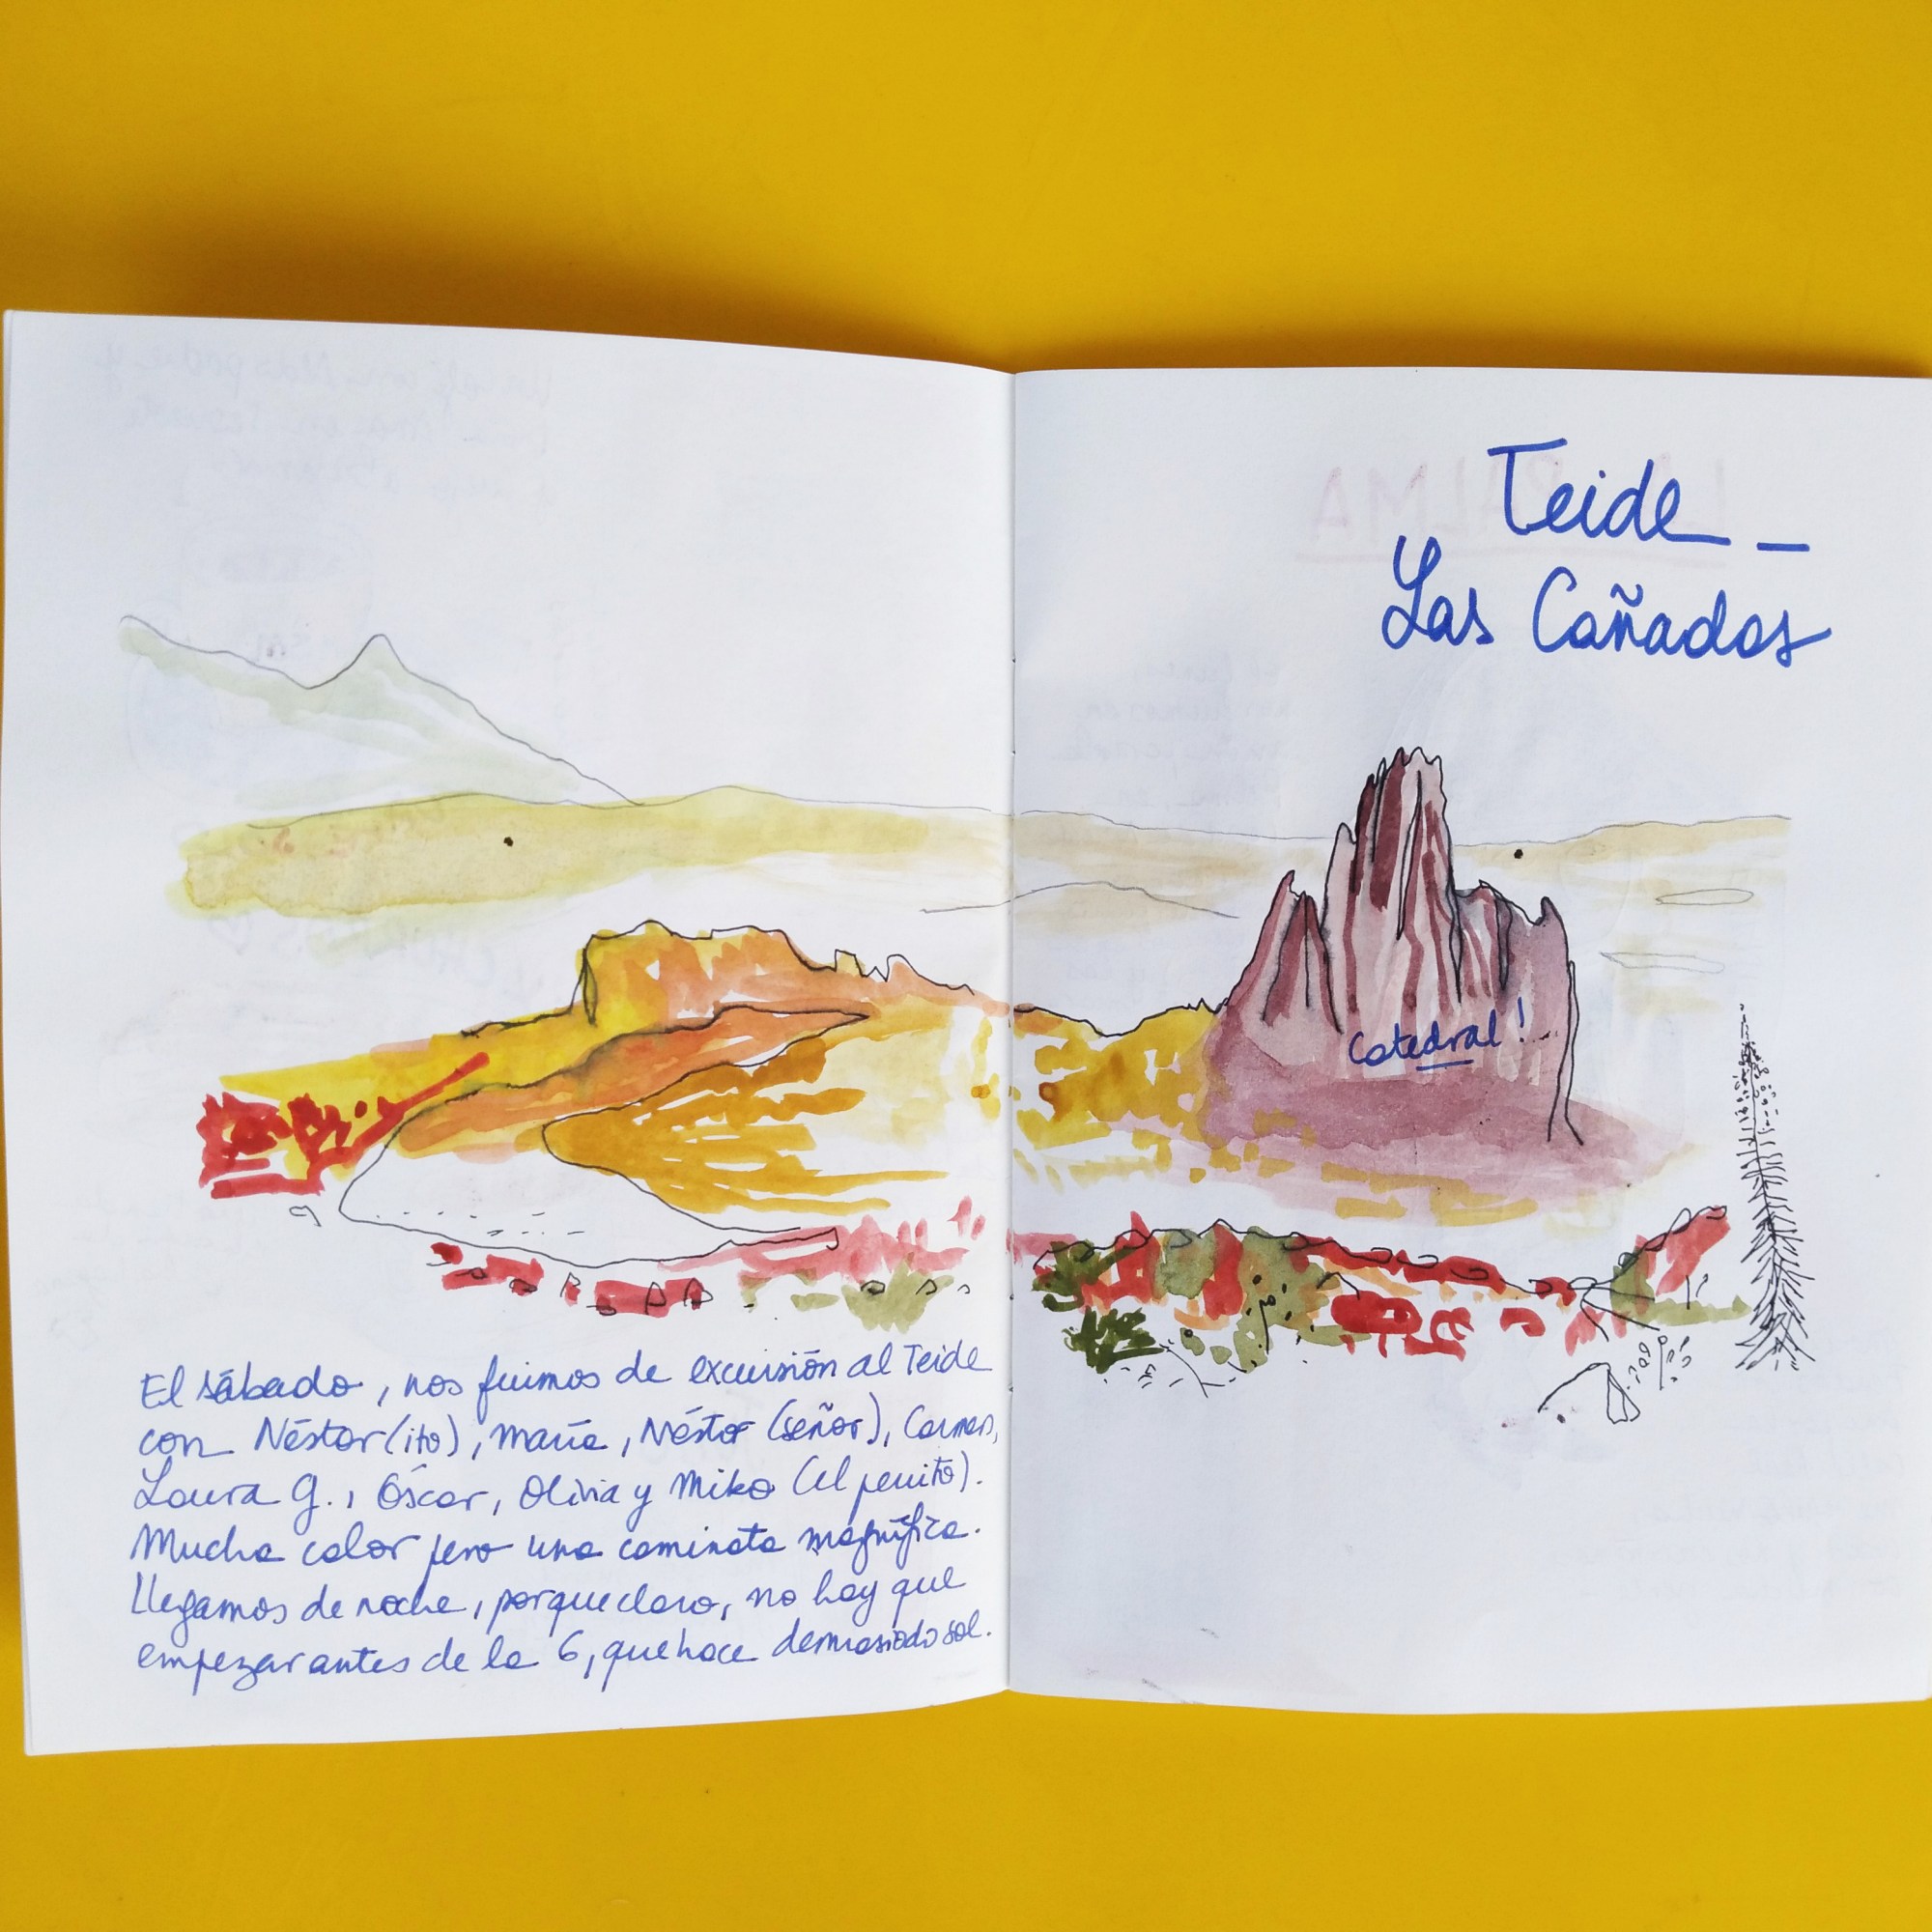 Teide _
Las Cañadas
Catedral!
El sábado, nos fuimos de excursión al Teide
con Néstor(ito), María, Néstor (señor), Carmen,
Laura G., Óscar, Olivia y Miko (el perrito).
Mucho calor pero una caminata magnífica.
Llegamos de noche, porque claro, no hay que
empezar antes de la 6, que hace demasiado sol.